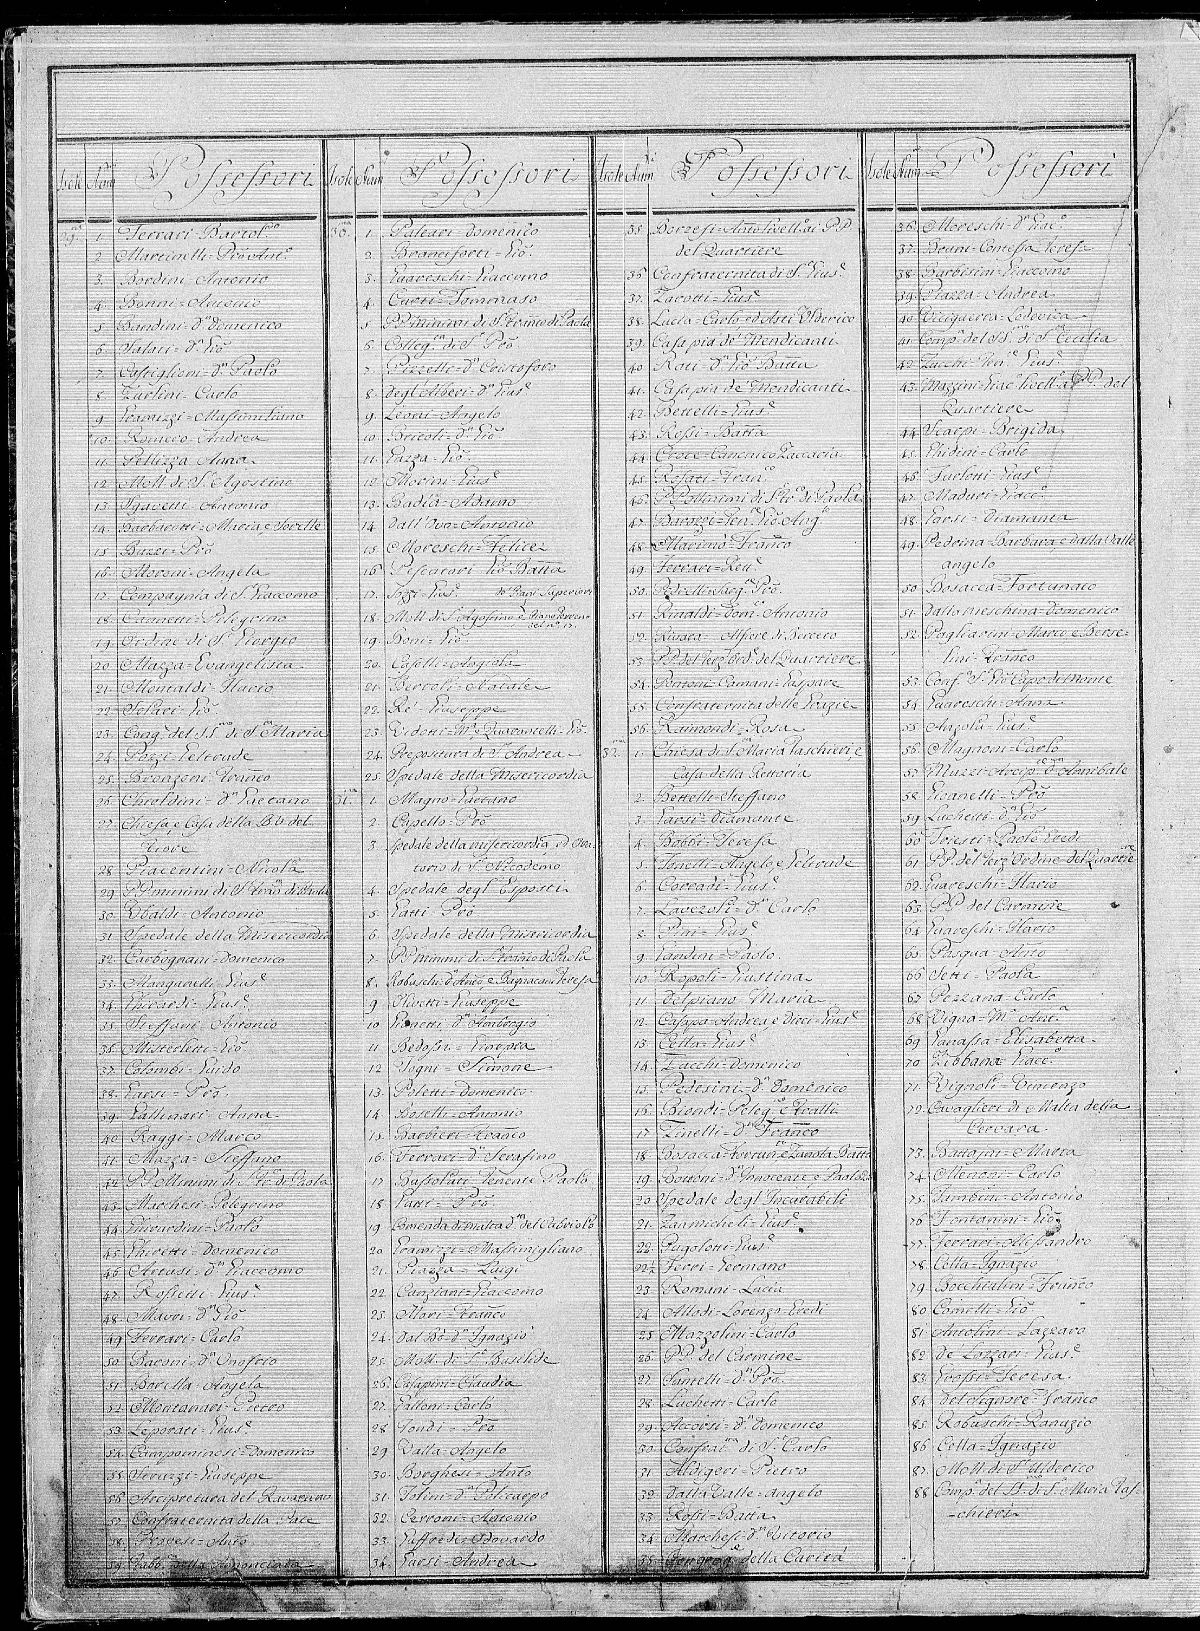 Isole Num.i Possessori
29.na 1 Ferrari = Bartol.o
2 Martinelli = Pro Ant.o
3. Bordini = Antonio
4 Bonni = Antonio
5 Bandini = D.n Domenico
6. Salari = D.n Gio
7. Castiglioni = D.n Paolo
8 Zurlini = Carlo
9 Gramizzi = Massimiliano
10. Romero = Andrea
11. Pellizza = Anna
12 Mon. di S. Agostino
13 Sgavetti = Antonio
14. Barbarotti = Maria, e Sorelle
15 Buzzi = Prō
16. Moroni = Angela
17. Compagnia di S. Giacomo
18. Cannetti = Pelegrino
19. Ordine di S. Giorgio
20. Mazza = Evangelista
21. Montaldi = Ilario
22 Sellari = Gio
23. Cong.e del SS.mo di S.a Maria
24. Pozzi = Geltrude
25. Bronzoni = Franco
26. Ghroldini = D.n Gaetano
27. Chiesa, e Casa della B.V. del
Fiore
28 Piacentini = Nicola
29. PP. Minimi di S. Fran.o di Paola
30. Ubaldi = Antonio
31. Spedale della Misericordia
32. Carbognani = Domenico
33. Manganelli = Gius.e
34. Ghirardi = Gius.e
35. Steffani = Antonio
36. Misterletti = Gio
37. Colombi = Guido
38. Garsi = Prō
39. Gallinari = Anna
40. Raggi = Marco
41. Mazza = Steffano
42. PP. Minimi di S. Fr. di Paola
43. Marchesi = Pelegrino
44. Ghirardini = Paolo
45. Ghiretti = Domenico
46. Artusi = D.n Giaccomo
47. Rossetti = Gius.e
48. Mauri = D.n Gio
49. Ferrari = Carlo
50. Baroni = D.n Onofrio
51. Borella = Angela
52. Montanari = Pietro
53. Leporati = Gius.e
54. Campominosi = Domenico
55. Feruzzi = Giuseppe
56. Arcipretura del Ravarano
57. Confraternita della Pace
58. Provesi = Anto
59. Fabb.a della Annonciata
Isole Num. Possessori
30.ma 1 Paleari = Domenico
2. Branciforti = Gio
3. Guareschi = Giacomo
4. Curti = Tommaso
5. PP. Minimi di S. Franco di Paola
6. Colleg.a di S. Prō
7. Pizzelli = D.n Cristoforo
8. degl'Alberi = D.n Gius.e
9. Leoni = Angelo
10. Bricoli = D.n Gio
11. Gazza = Gio
12. Morini = Gius.e
13. Badia = Adamo
14 dall'Ovo = Antonio
15. Moreschi = Felice
16 Pescatori Gio Batta
17. Sozi = Gius.e de Piani Superiori
18. Mon. di S. Agostino
19. Boni = Gio
20. Caselli = Angiola
21. Bertoli = Natale
22. Ré = Giuseppe
23. Vidotti = M.a Quaranselli = Gio
24. Prepositura di S. Andrea
25. Spedale della Misericordia
31.ma 1. Magno = Gaetano
2 Capello = Prō
3. Spedale della misericordia, ed Ora-
torio di S. Nicodemo
4. Spedale degl'Esposti
5. Gatti = Prō
6. Spedale della Misericordia
7. PP. Minimi di S. Franco di Paola
8. Robuschi = D.n Anto, e Bignacani Teresa
9 Olivetti = Giuseppe
10 Gionetti = D.n Ambrogio
11 Bedossi = Ginepra
12 Sogni = Simone
13. Poletti = Domenico
14 Boselli = Antonio
15. Barbieri = Franco
16. Ferrari = D.n Serafino
17 Bussolati = Tenente Paolo
18 Gatti = Prō
19. Comenda di Malta D.n del Cabriolo
20. Gramizzi = Massimigliano
21. Piazza = Luigi
22. Canziani = Giacomo
23. Ilari = Franco
24. Dal Bò = D.n Ignazio
25. Mon. di S. Basilide
26. Casapini = Claudia
27. Galloni = Carlo
28 Fondi = Prō
29. Dalla = Angelo
30. Borghesi = Anto
31. Tolini = D.n Policarpo
32. Cerroni = Antonio
33. Giuffredi = Odoardo
34. Garsi = Andrea
Isole Num.i Possessori
35. Borzesi = Anto livell.o ai PP.
del Quartiere
36 Confraternita di S. Gius.e
37. Zarotti = Gius.e
38. Lucia = Carlo ed Asti Olderico
39. Casa pia de Mendicanti
40. Roti = D.n Gio Batta
41. Casa pia de Mendicanti
42. Bertelli = Gius.e
43. Rossi = Batta
44. Croce = Canonico Zaccaria
45. Rosati = Fran.o
46. PP. Minimi di S. Fr.o di Paola
47. Barozzi = Ten.e Gio Aug.o
48. Marimò = Franco
49. Ferrari = Rett.e
50. Pedretti = Sarg.e Prō
51. Rinaldi = Dom.o Antonio
52. Rivara = Alfiere di Berceto
53. PP. del Terz'Ord. del Quartiere
54. Bottoni Camani = Gaspare
55. Confraternita delle Grazie
56. Raimondi = Rosa
32.ma 1. Chiesa di S. Maria Taschieri e
Casa della Rettoria
2. Bertelli = Steffano
3. Garsi = Diamante
4. Bobbi = Teresa
5. Tonelli = Angelo, e Geltrude
6. Corradi = Gius.e
7. Lavezoli = D.n Carlo
8. Pini = Gius.e
9. Landini = Paolo
10. Ropoli = Giustina
11. Delpiano = Maria
12. Casapa = Andrea e Dieci = Gius.e
13. Cella = Gius.e
14. Zucchi = Domenico
15. Pedesini = D.n Domenico
16. Biondi = Peleg.o e Fratti
17. Zinelli = D.n Franco
18. Bosacca = Fortun.o e Zanola Batta
19. Bottoni = D.n Innocente e Paolo
20. Spedale degl'Incurabili
21. Zarmicheli = Gius.e
22. Pagolotti = Gius.e
22½ Ferri = Germano
23. Romani = Lucia
24. Allodi = Lorenzo = Eredi
25. Mazzolini = Carlo
26. PP. del Carmine
27. Santelli = D.n Prō
28. Luchetti = Carlo
29. Accorsi = D.n Domenico
30. Confrat.a di S. Carlo
31. Aldigeri = Pietro
32. Dalla Valle = Angelo
33. Rossi = Batta
34. Marchesi = D.n Vittorio
35. Congreg.e della Carità
Isole Num.i Possessori
36. Moreschi = D.n Giac.o
37. Bonni = Contessa Teresa
38. Barbesini = Giaccomo
39. Piazza = Andrea
40. Viciguerra = Lodovica
41. Comp.a del SS.mo di S.a Cecilia
42. Zuchi = Ten.e Gius.e
43. Mazzini = Giac.o livell.o a PP. del
Quartiere
44. Scarpi = Brigida
45. Ghidini = Carlo
46. Furlotti = Gius.e
47. Maduri = Giacc.o
48. Garsi = Diamanta
49. Pedrina = Barbara, e Dalla Valle
Angelo
50. Bosacca = Fortunato
51. Dalla Meschina = Domenico
52. Pagliarini = Marco e Berse-
lini = Franco
53. Conf.a S. Gio Capo di Ponte
54. Guareschi = Anna
55. Anzola = Gius.e
56. Magnoni = Carlo
57. Muzzi = Arcip.e D.n Annibale
58. Gioanelli = Prō
59. Luchetti = D.n Gio
60. Foresti = Paolo Eredi
61. PP. del Terz'Ordine del Quartiere
62. Guareschi = Ilario
63. PP. del Carmine
64. Guareschi = Ilario
65. Pasqua = Anto
66. Setti = Paola
67. Pezzana = Carlo
68. Vigna = M.a Ant.a
69. Panassa = Elisabetta
70. Zibbana = Giacc.o
71. Vignoli = Vincenzo
72. Cavaglieri di Malta della
Cervara.
73. Battosini = Marta
74. Menoni = Carlo
75. Zambini = Antonio
76. Fontanini = Gio
77. Ferrari = Alissandro
78. Cella = Ignazio
79. Bocchialini = Franco
80. Cornetti = Gio
81. Antolini = Lazzaro
82. de Lazzari = Gius.e
83. Grossi = Teresa.
84. del Signore = Franco
85. Robuschi = Ranuzio
86. Cella = Ignazio
87. Mon. di S. Ulderico
88. Comp.a del SS. di S. Maria Tas-
chieri